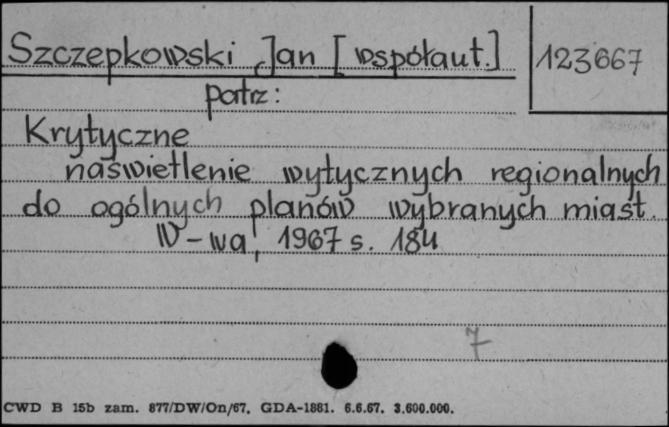 Szczepkowski Jan [współaut.]
123667
patrz:
Krytyczne
naświetlenie wytycznych regionalnych
do ogólnych planów wybranych miast.
W-wa, 1967 s. 184
7
CWD B 15b zam. 877/DW/On/67. GDA-1881. 6.6.67. 3.600.000.